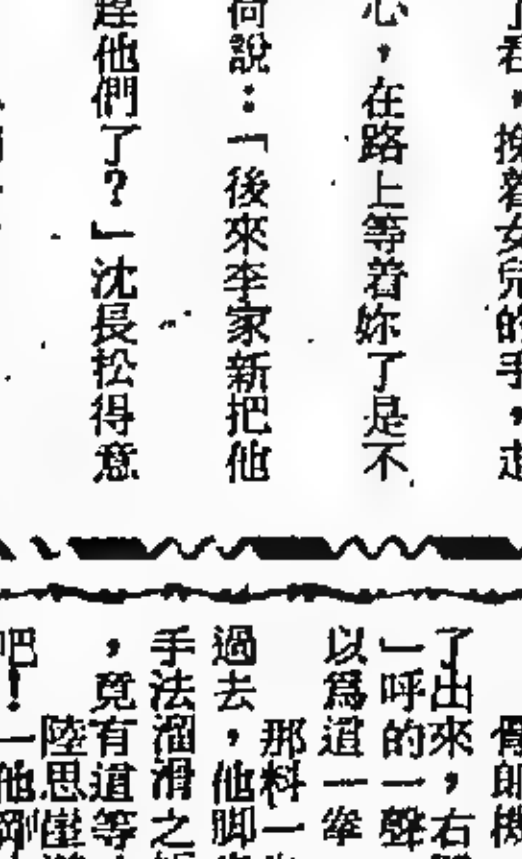 君，挽着女兒的手，走
心，在路上等着妳了是不
說：「後來李家新把他
他們了？」沈長松得意
郎機
了出來，右
」呼的一聲
以爲這一拳
那料一
過去，他脚
手法溜滑之
，竟有這等
陸思崖
吧！」他